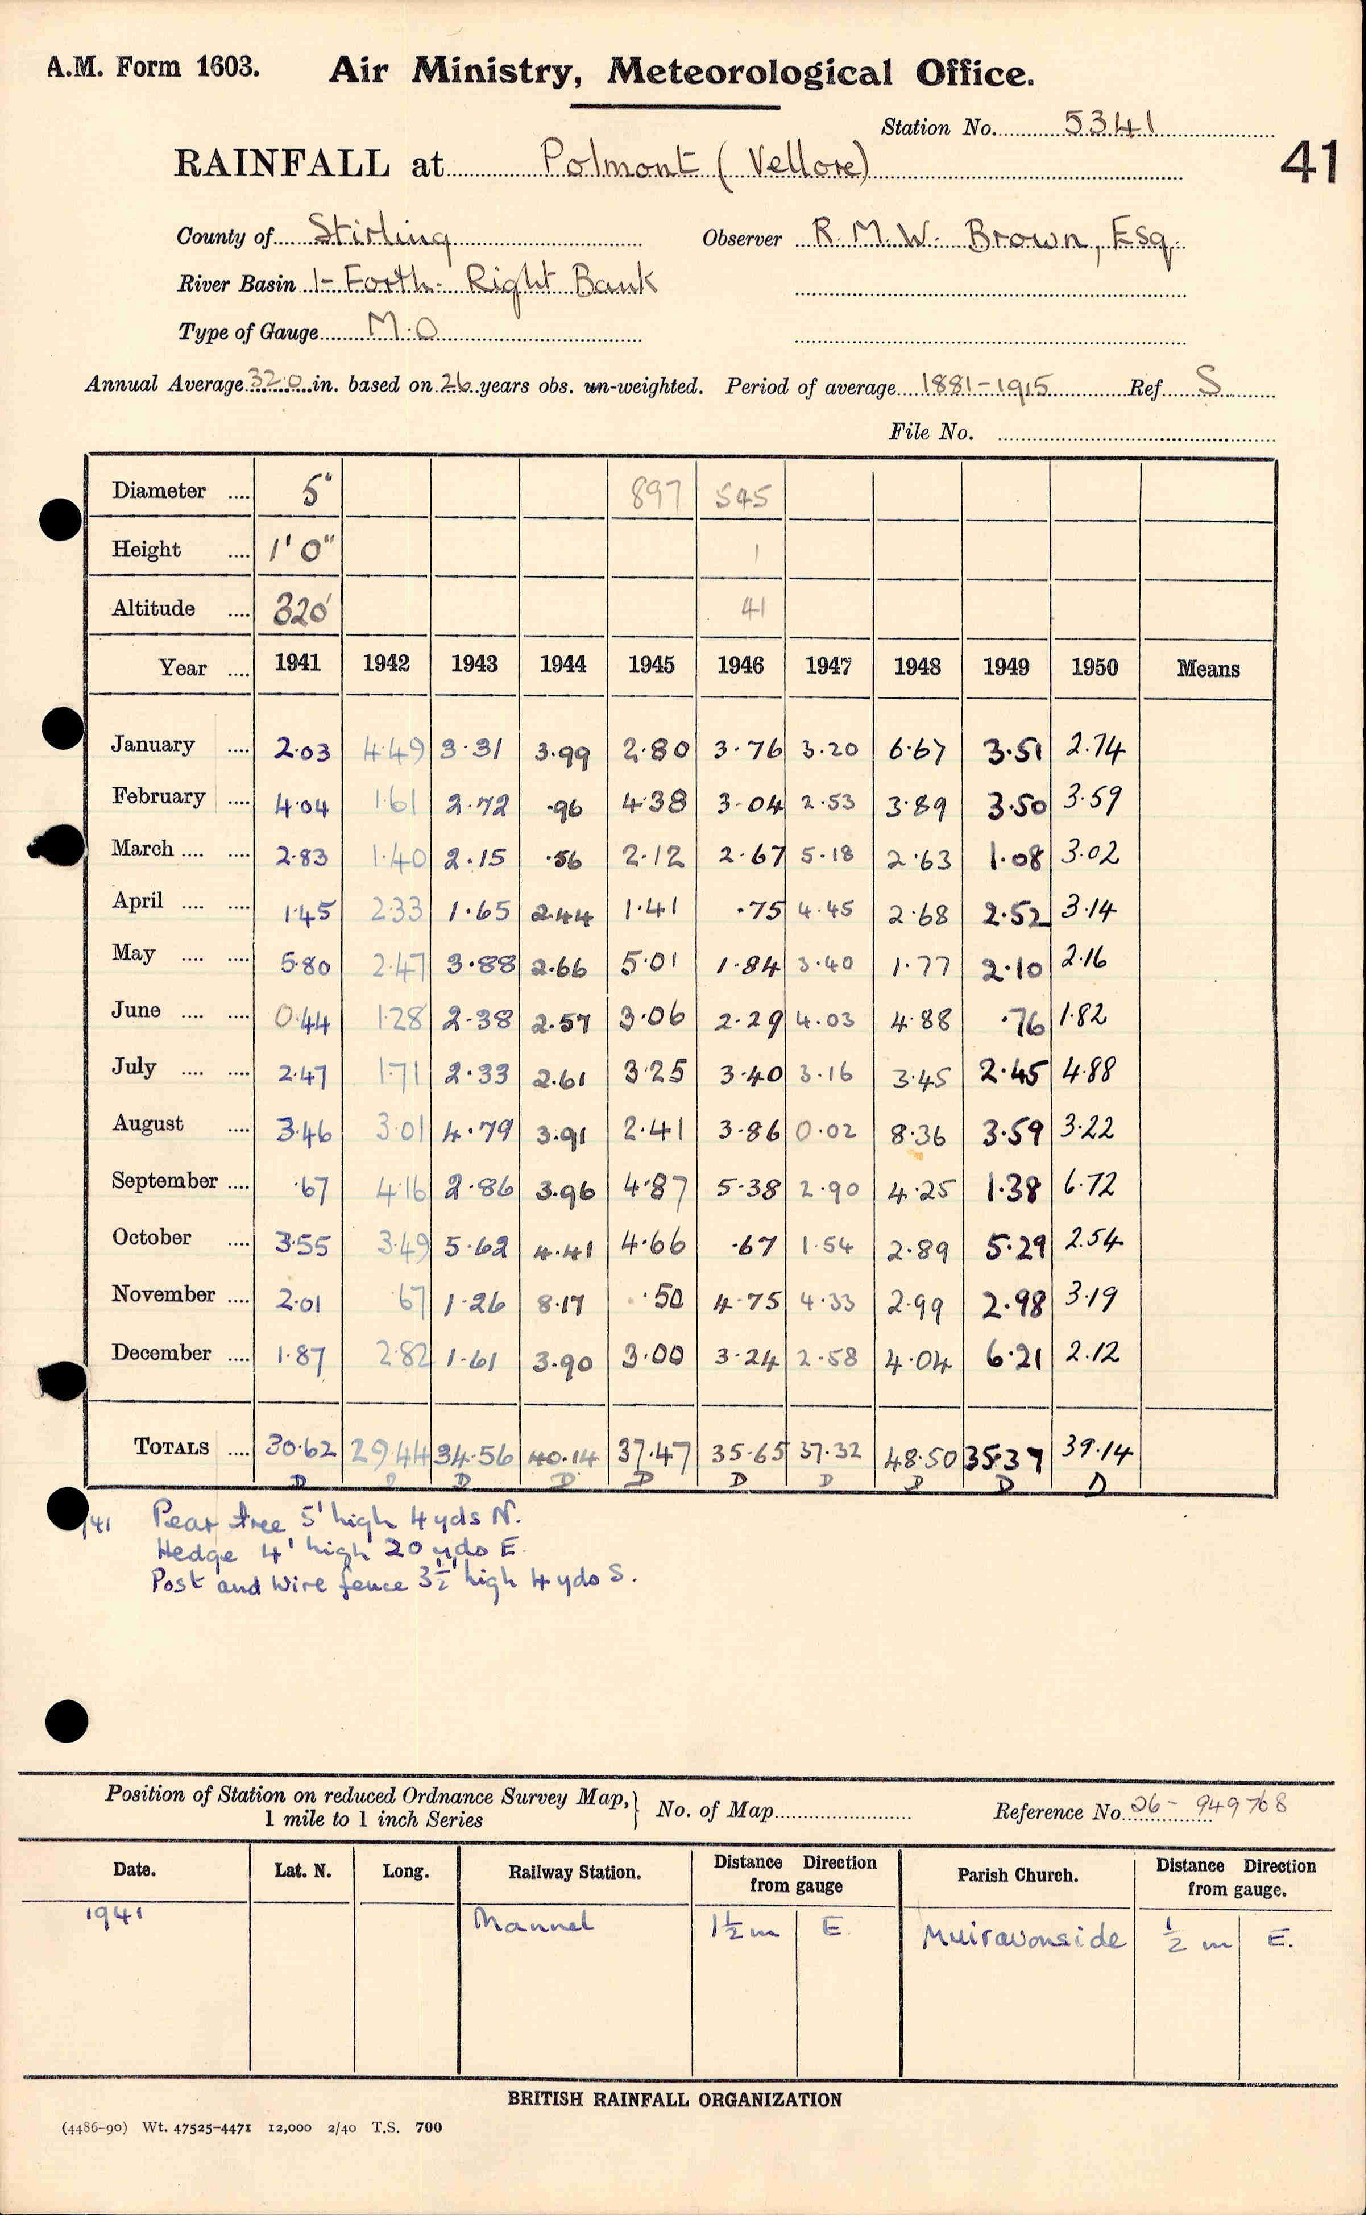 A.M. Form 1603. Air Ministry, Meteorological Office.
Station No. 5341
41
RAINFALL at Polmont (Vellore)
County of Stirling Observer R. M. W. Brown, Esq.
River Basin 1- Forth - Right Bank
Type of Gauge M.O
Annual Average 32.0 in. based on 26 years obs. un-weighted. Period of average 1881-1915 Ref. S
File No.
Diameter .... 5" 897 545
Height .... 1' 0" 1
Altitude .... 320' 41
Year .... 1941 1942 1943 1944 1945 1946 1947 1948 1949 1950 Means
January .... 2.03 4.49 3.31 3.99 2.80 3.76 3.20 6.67 3.51 2.74
February .... 4.04 1.61 2.72 .96 4.38 3.04 2.53 3.89 3.50 3.59
March .... .... 2.83 1.40 2.15 .56 2.12 2.67 5.18 2.63 1.08 3.02
April .... .... 1.45 2.33 1.65 2.44 1.41 .75 4.45 2.68 2.52 3.14
May .... .... 5.80 2.47 3.88 2.66 5.01 1.84 3.40 1.77 2.10 2.16
June .... .... 0.44 1.28 2.38 2.57 3.06 2.29 4.03 4.88 .76 1.82
July .... .... 2.47 1.71 2.33 2.61 3.25 3.40 3.16 3.45 2.45 4.88
August .... 3.46 3.01 4.79 3.91 2.41 3.86 0.02 8.36 3.59 3.22
September .... .67 4.16 2.86 3.96 4.87 5.38 2.90 4.25 1.38 6.72
October .... 3.55 3.49 5.62 4.41 4.66 .67 1.54 2.89 5.29 2.54
November .... 2.01 .67 1.26 8.17 .50 4.75 4.33 2.99 2.98 3.19
December .... 1.87 2.82 1.61 3.90 3.00 3.24 2.58 4.04 6.21 2.12
TOTALS .... 30.62 29.44 34.56 40.14 37.47 35.65 37.32 48.50 35.37 39.14
D D D D D D D D D D
/41 Pear tree 5' high 4 yds N.
Hedge 4' high 20 yds E
Post and wire fence 3½' high 4 yds S.
Position of Station on reduced Ordnance Survey Map, 1 mile to 1 inch Series } No. of Map Reference No. 26- 949768
Date. Lat. N. Long. Railway Station. Distance Direction from gauge Parish Church. Distance Direction from gauge.
1941 Mannel 1½ m E. Muiravonside ½ m E.
BRITISH RAINFALL ORGANIZATION
(4486-90) Wt. 47525-4471 12,000 2/40 T.S. 700